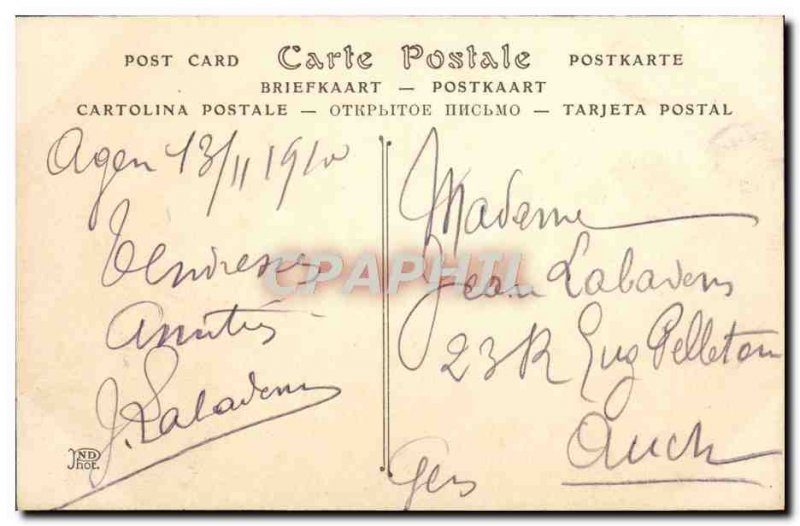 POST CARD Carte Postale POSTKARTE
BRIEFKAART — POSTKAART
CARTOLINA POSTALE — ОТКРЫТОЕ ПИСЬМО — TARJETA POSTAL
Agen 13/11 1910
Tendresses
Amitiés
J. Labadens
ND
Phot.
Madame
Jean Labadens
23 R Eug Pelletan
Auch
Gers
CPAPHIL